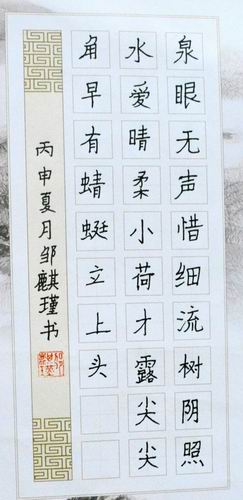 泉眼无声惜细流树阴照
水爱晴柔小荷才露尖尖
角早有蜻蜓立上头
丙申夏月邹麒瑾书